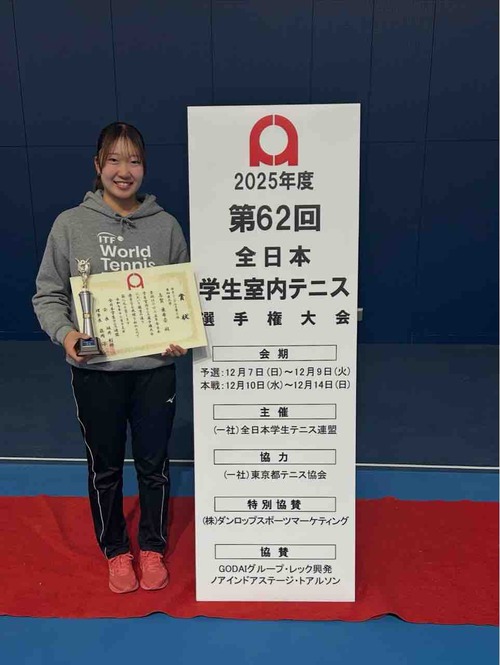 2025年度
第62回
全日本
学生室内テニス
選手権大会
会期
予選:12月7日(日)~12月9日(火)
本戦:12月10日(水)~12月14日(日)
主催
(一社)全日本学生テニス連盟
協力
(一社)東京都テニス協会
特別協賛
(株)ダンロップスポーツマーケティング
協賛
GODAIグループ・レック興発
ノアインドアステージ・トアルソン
ITF
World
Tennis
賞状